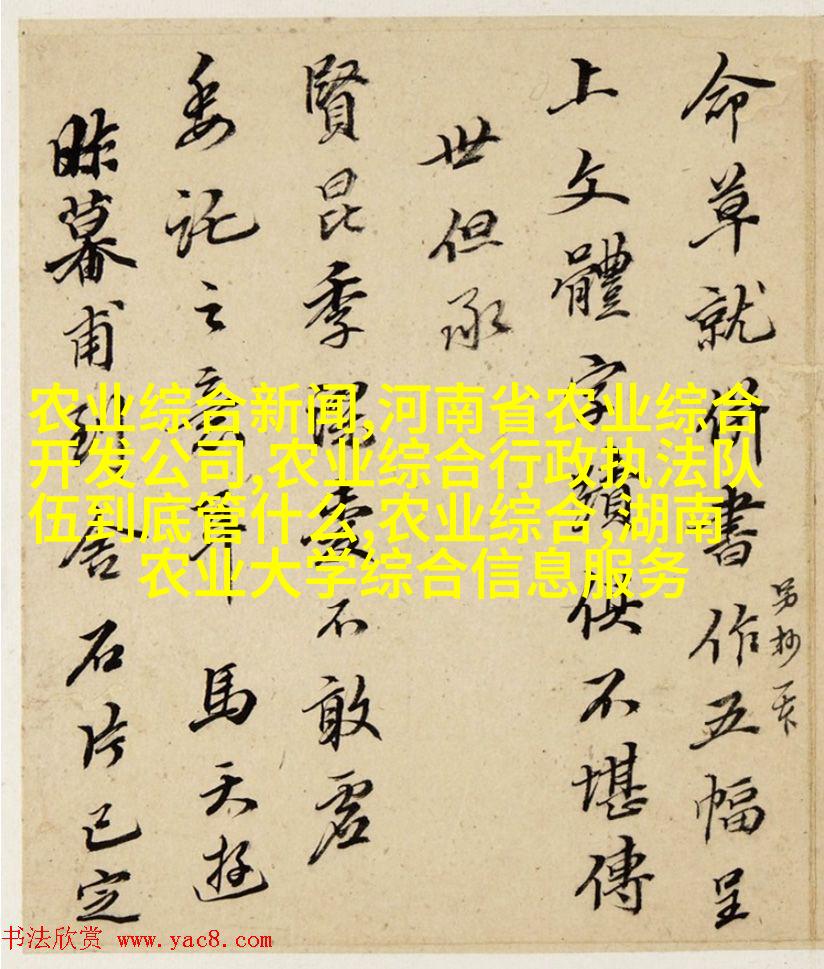 命草就併書作五幅呈
另抄一
上文體字蹟俱不堪傳
世但承
賢昆季愛不敢虛
委託之意耳馬天游
昨暮甫到舍石片已定
农业综合新闻,河南省农业综合
开发公司,农业综合行政执法队
伍到底管什么,农业综合,湖南
农业大学综合信息服务
书法欣赏 www.yac8.com